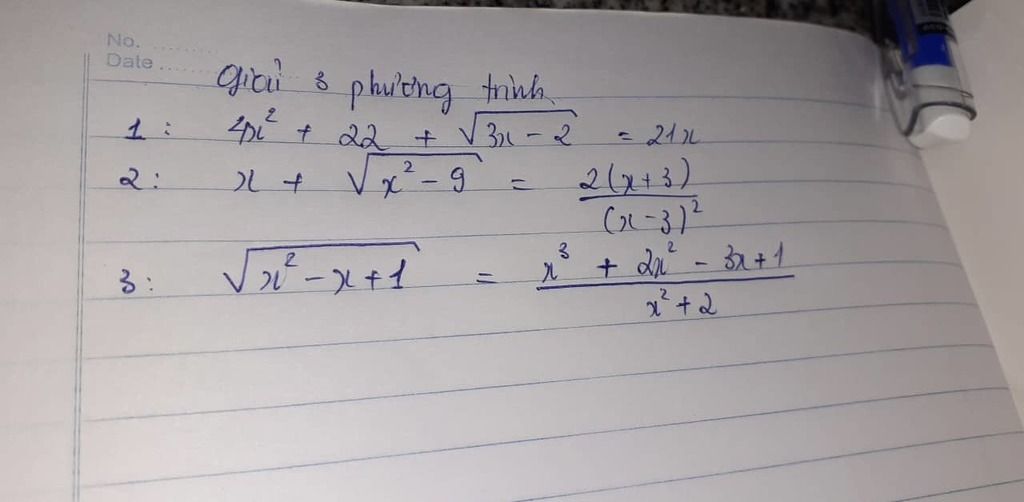 No.
Date
Giải 3 phương trình
1: 4x² + 22 + √(3x - 2) = 21x
2: x + √(x² - 9) = 2(x+3)/(x-3)²
3: √(x² - x + 1) = (x³ + 2x² - 3x + 1)/(x² + 2)